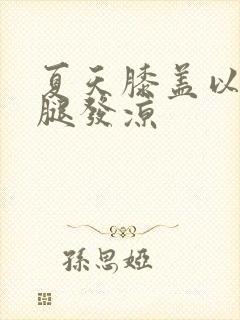 夏天膝盖以
腿發涼
孫思婭